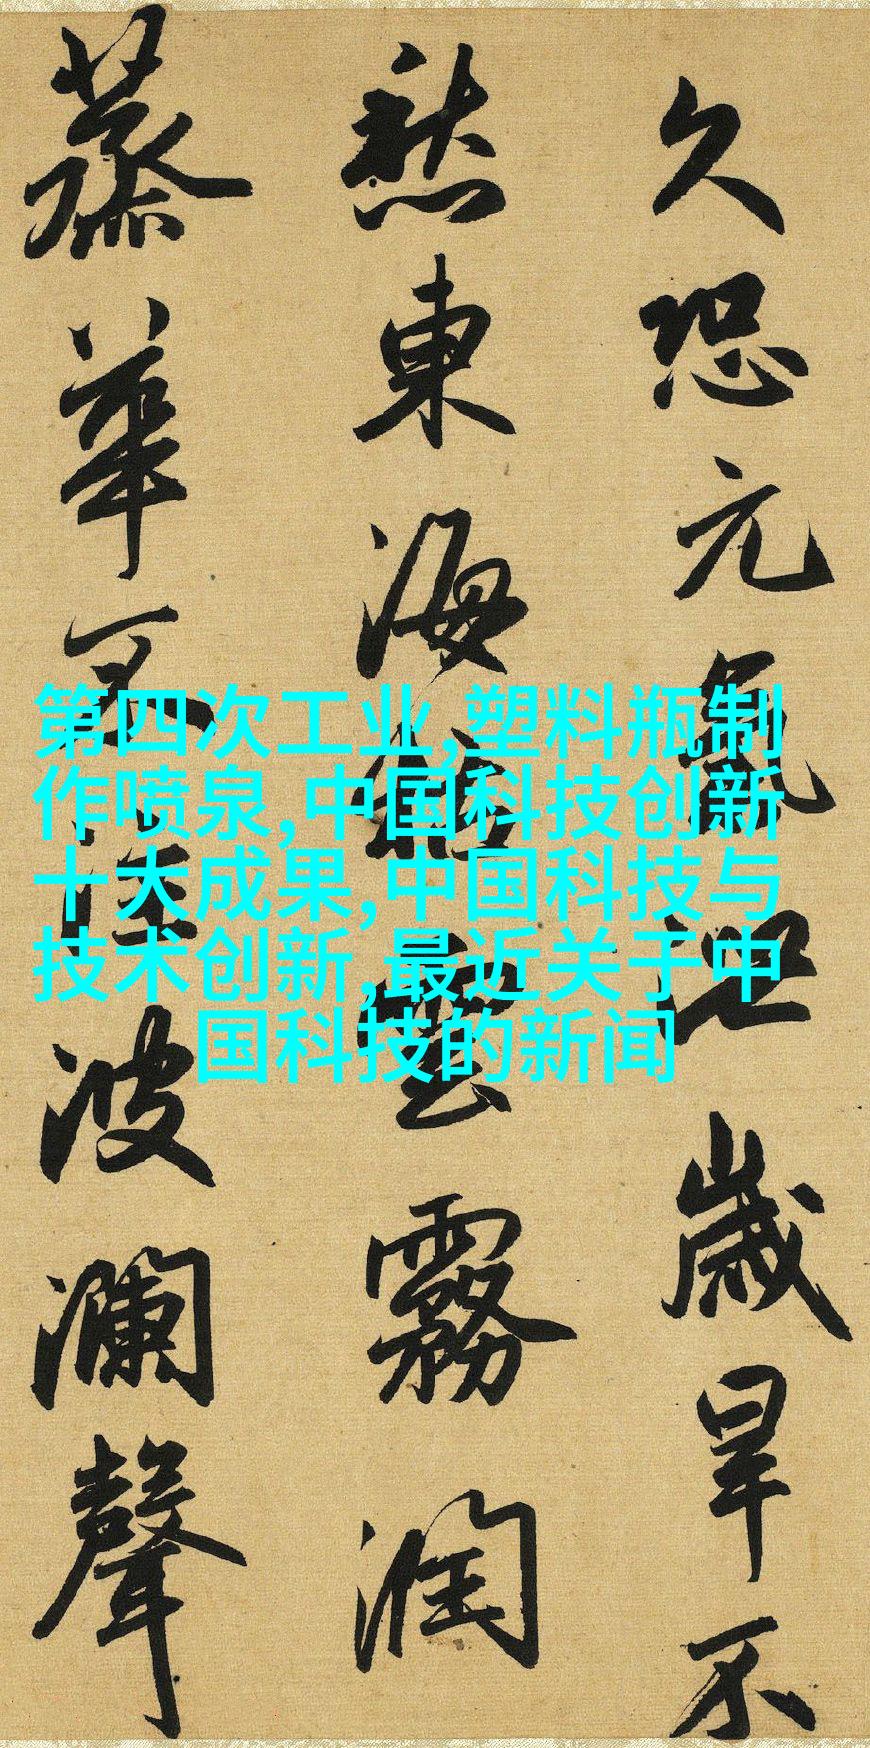 久恐元氣泄歲旱不
愁東海枯雲霧潤
蒸華不注波瀾聲
第四次工业,塑料瓶制
作喷泉,中国科技创新
十大成果,中国科技与
技术创新,最近关于中
国科技的新闻